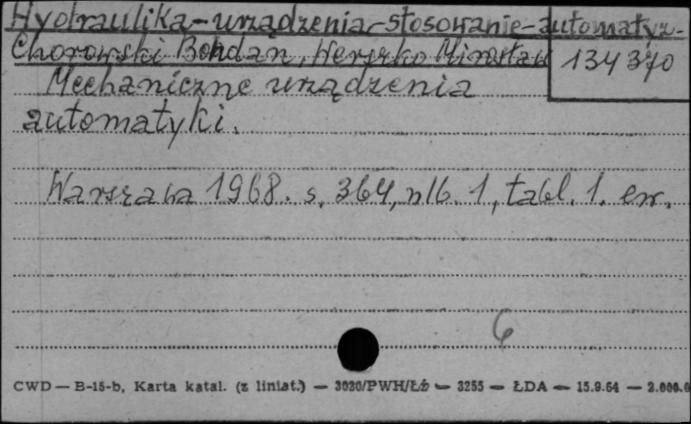 Hydraulika-urządzenia-stosowanie-automatyz.-
Chorowski Bohdan, Werszko Mirosław
134370
Mechaniczne urządzenia
automatyki.
Warszawa 1968. s. 364, nlb. 1, tabl. 1. err.
6
CWD — B-15-b, Karta katal. (z liniat.) — 3030/PWH/Łż — 3255 — ŁDA — 15.9.64 — 2.000.0